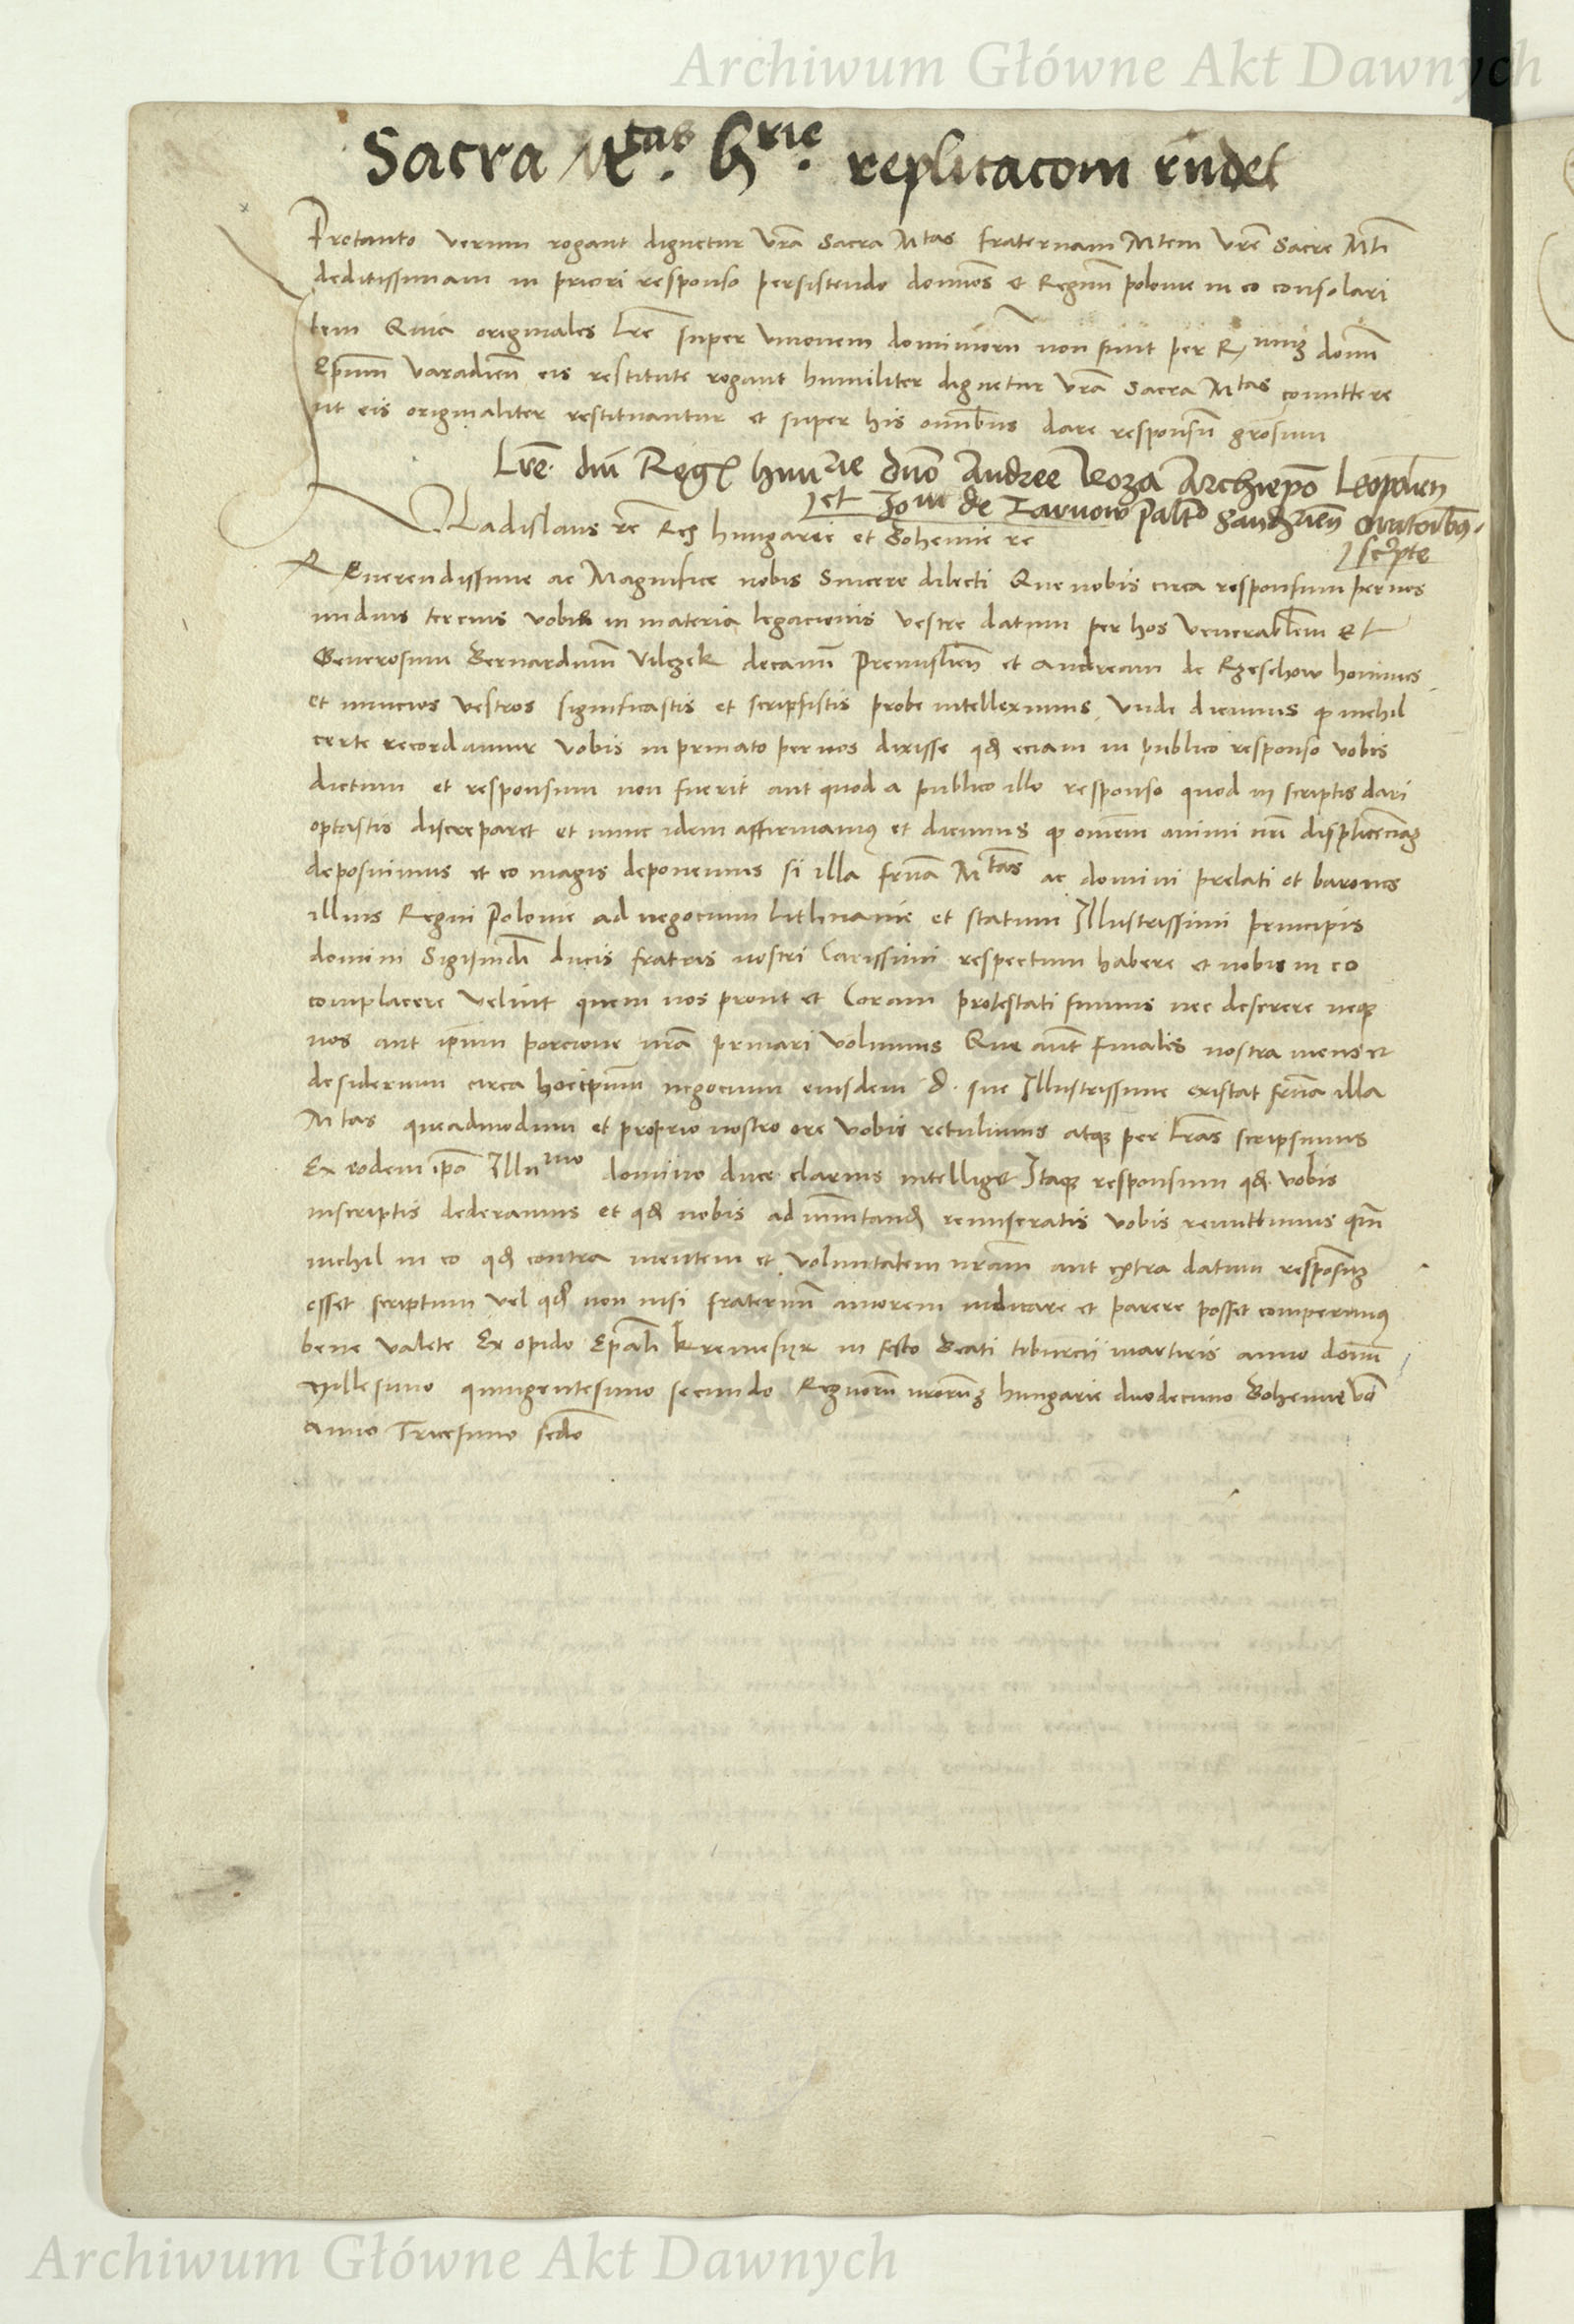 Archiwum Główne Akt Dawnych
Sacra Mtas hrie replicacom rndet
Protanto verum rogant dignetur vra Sacra Mtas fraternam Mtem vre Sacre Mti
deditissimam in priori responso persistendo dominos et Regnum polonie in eo consolari
Item Quia originales lre super unionem dominiorum non sunt per R domin
Epum Varadien eis restitute rogant humiliter dignetur vra Sacra Mtas comittere
ut eis originaliter restituantur et super his omnibus dare responsum grosum
Lre dni Reg hunrie dno Andree Roza Archiepo Leopolien
et Joni de Tarnow palto Sandomirien oratoribus
scripte
Wladislaus re Rex hungarie et Bohemie re
REverendissime ac Magnifice nobis sincere dilecti Que nobis circa responsum per nos
nudius tercius vobis in materia legacionis vestre datum per hos venerabilem et
Generosum Bernardinum Vilczek decanum Premislien et Andream de Rzeschow homines
et nuncios vestros significastis et scripsistis probe intelleximus Unde dicimus q nichil
certe recordamur vobis in privato per nos dixisse qd eciam in publico responso vobis
dictum et responsum non fuerit aut quod a publico illo responso quod in scriptis dari
optastis discreparet et nunc idem affirmamus et dicimus q omnem animi nri displicenciam
deposuimus et eo magis deponemus si illa frna Mtas ac domini prelati et barones
illius Regni Polonie ad negocium Lithuanie et statum Illustrissimi principis
domini Sigismdi ducis fratris nostri Carissimi respectum habere et nobis in eo
complacere velint quem nos prout et Coram protestati sumus nec deserere neq
nos aut ipsum porcione nra privari volumus Que aut finalis nostra mens et
desiderium circa hoc ipsum negocium eiusdem d. sue Illustrissime existat frna illa
Mtas queadmodum et proprio nostro ore vobis retulimus atq per lras scripsimus
Ex eodem ipo Illumo domino duce clarius intelliget Itaq responsum qd vobis
inscriptis dederamus et qd nobis ad imutand remiseratis vobis remittimus qm
nichil in eo qd contra mentem et voluntatem nram aut extra datum responsum
esset scriptum vel qd non nisi fraternum amorem indicare et parere posset comperimus
bene valete Ex opido Epali kremesyr in festo Beati tiburcii martiris anno domini
Millesimo quingentesimo secundo Regnorum nrorum hungarie duodecimo Bohemie vo
anno Tricesimo secdo
Archiwum Główne Akt Dawnych